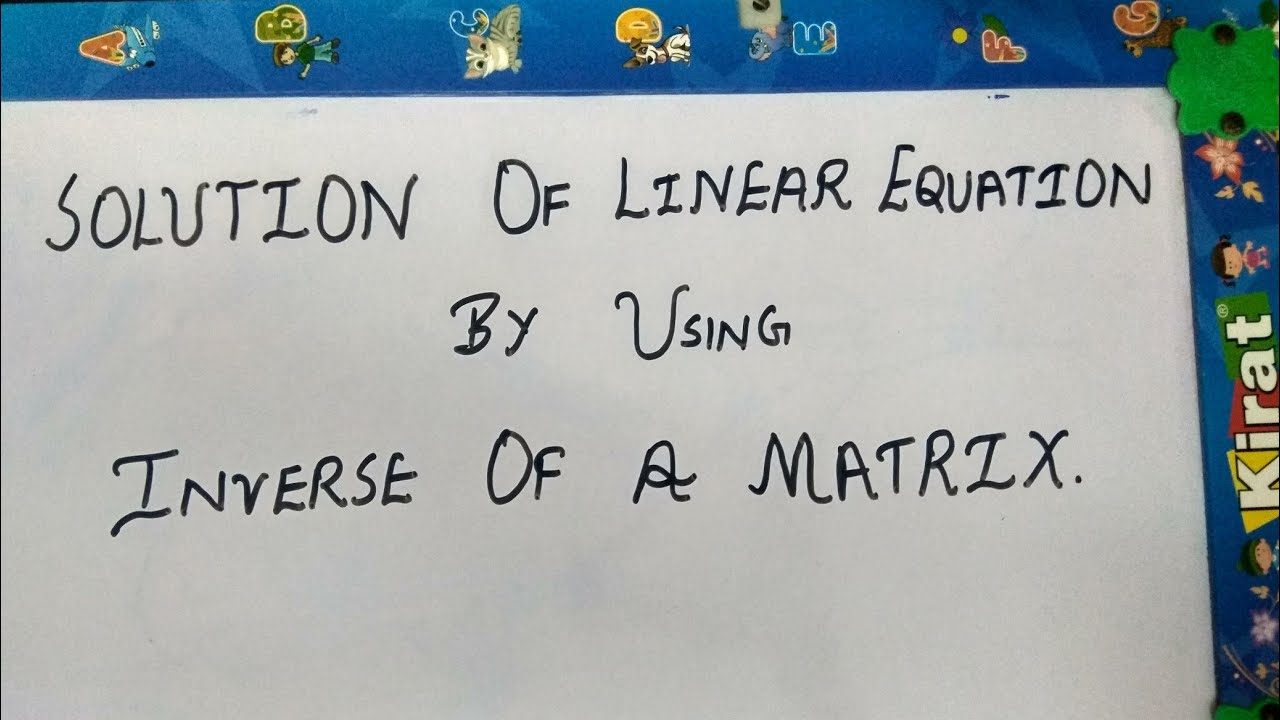 A B C D E F G
SOLUTION OF LINEAR EQUATION
BY USING
INVERSE OF A MATRIX.
Kirat®